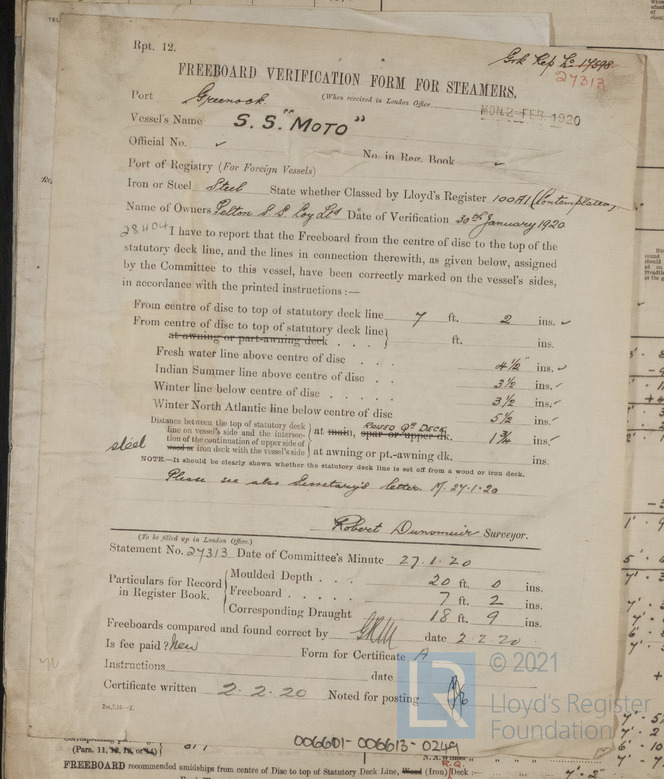 Rpt. 12.
Grk Rep No 17598
27313
FREEBOARD VERIFICATION FORM FOR STEAMERS.
Port Greenock (When received in London Office MON. 2 FEB 1920
Vessel's Name S.S. "MOTO"
Official No. ✓ No. in Reg. Book ✓
Port of Registry (For Foreign Vessels)
Iron or Steel Steel State whether Classed by Lloyd's Register 100A1 (Contemplated)
Name of Owners Pelton S.S. Coy Ltd Date of Verification 30th January 1920
28404 I have to report that the Freeboard from the centre of disc to the top of the
statutory deck line, and the lines in connection therewith, as given below, assigned
by the Committee to this vessel, have been correctly marked on the vessel's sides,
in accordance with the printed instructions :—
From centre of disc to top of statutory deck line 7 ft. 2 ins. ✓
From centre of disc to top of statutory deck line
at awning or part-awning deck . . . } ft. ins.
Fresh water line above centre of disc . . . 4½ ins. ✓
Indian Summer line above centre of disc . . 3½ ins. ✓
Winter line below centre of disc . . . . . 3½ ins. ✓
Winter North Atlantic line below centre of disc 5½ ins. ✓
Distance between the top of statutory deck
line on vessel's side and the intersec-
tion of the continuation of upper side of
steel wood or iron deck with the vessel's side
at main, spar or upper dk. RAISED Qr DECK 1¾ ins. ✓
at awning or pt.-awning dk. ins.
NOTE.—It should be clearly shown whether the statutory deck line is set off from a wood or iron deck.
Please see also Secretary's letter M. 27.1.20
Robert Dunsmuir Surveyor.
(To be filled up in London Office.)
Statement No. 27313 Date of Committee's Minute 27.1.20
Particulars for Record
in Register Book.
Moulded Depth . . . 20 ft. 0 ins.
Freeboard . . . . . 7 ft. 2 ins.
Corresponding Draught 18 ft. 9 ins.
Freeboards compared and found correct by date 2 2 20
Is fee paid? New Form for Certificate A
Instructions date
Certificate written 2.2.20 Noted for posting
2m,7,13.—T.
LR
© 2021
Lloyd's Register
Foundation
006601-006613-0249
(Para. 11, 12, 13, or 14)
FREEBOARD recommended amidships from centre of Disc to top of Statutory Deck Line, Wood (Iron) Deck :— 7'-2"
R.Q.